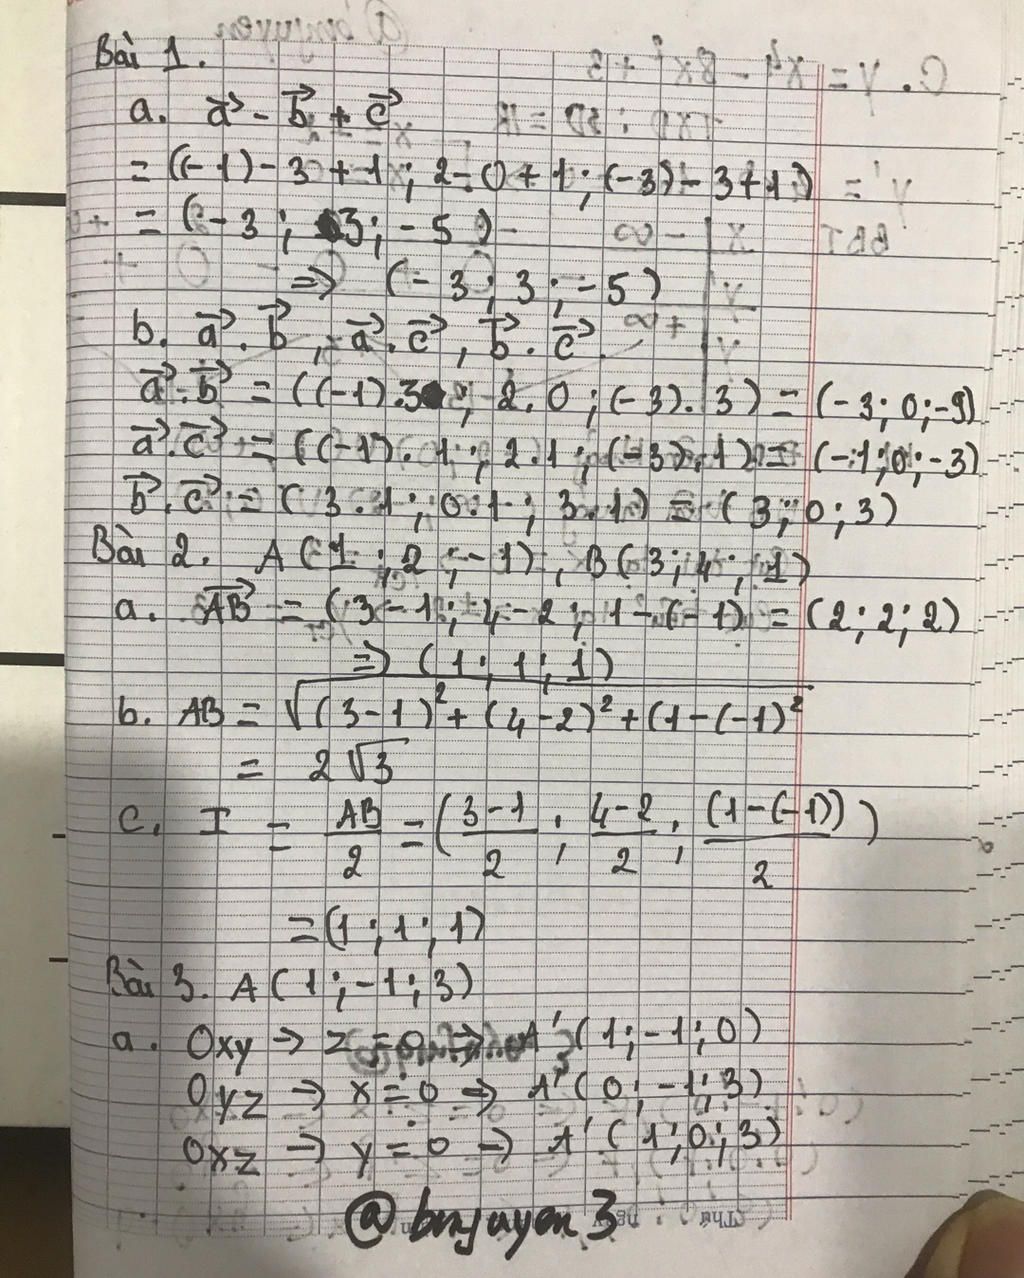 Bài 1.
a. a⃗ - b⃗ + c⃗
= ((-1) - 3 + 1 ; 2 - 0 + 1 ; (-3) - 3 + 1)
= (-3 ; 3 ; -5)
=> (-3 ; 3 ; -5)
b. a⃗ . b⃗ , a⃗ . c⃗ , b⃗ . c⃗
a⃗ . b⃗ = ((-1).3 ; 2.0 ; (-3).3) = (-3 ; 0 ; -9)
a⃗ . c⃗ = ((-1).1 ; 2.1 ; (-3).1) = (-1 ; 0 ; -3)
b⃗ . c⃗ = (3.1 ; 0.1 ; 3.1) = (3 ; 0 ; 3)
Bài 2. A(1 ; 2 ; -1) , B(3 ; 4 ; 1)
a. AB⃗ = (3-1 ; 4-2 ; 1-(-1) = (2 ; 2 ; 2)
=> (1 ; 1 ; 1)
b. AB = √(3-1)² + (4-2)² + (1-(-1)²
= 2√3
c. I = AB/2 = (3-1/2 ; 4-2/2 ; (1-(-1))/2)
= (1 ; 1 ; 1)
Bài 3. A(1 ; -1 ; 3)
a. Oxy → z = 0 → A'(1 ; -1 ; 0)
Oyz → x = 0 → A'(0 ; -1 ; 3)
Oxz → y = 0 → A'(1 ; 0 ; 3)